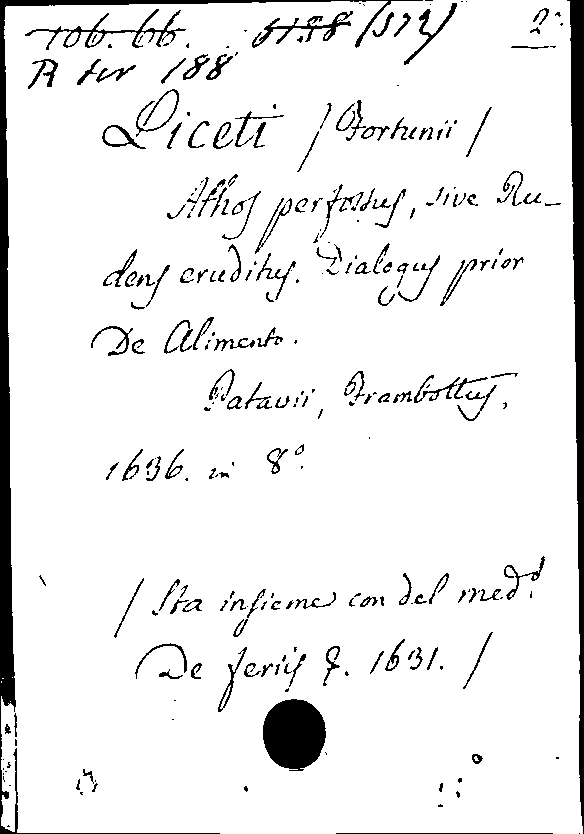 106. 66. 5188 (572) 2.
R ter 188
Liceti / Fortunii /
Athos perfossus, sive Ru-
dens eruditus. Dialogus prior
De Alimento.
Patavii, Frambottus,
1636. in 8º.
/ Sta insieme con del med.º
De feriis &. 1631. /